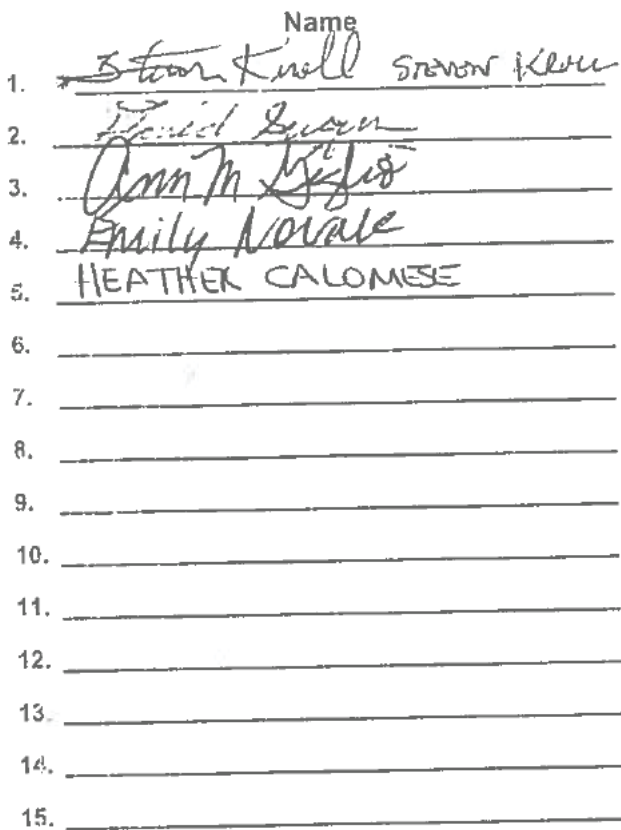 Name
1. Steven Kroll STEVEN KROLL
2. David
3. Ann M
4. Emily Novak
5. HEATHER CALOMESE
6.
7.
8.
9.
10.
11.
12.
13.
14.
15.